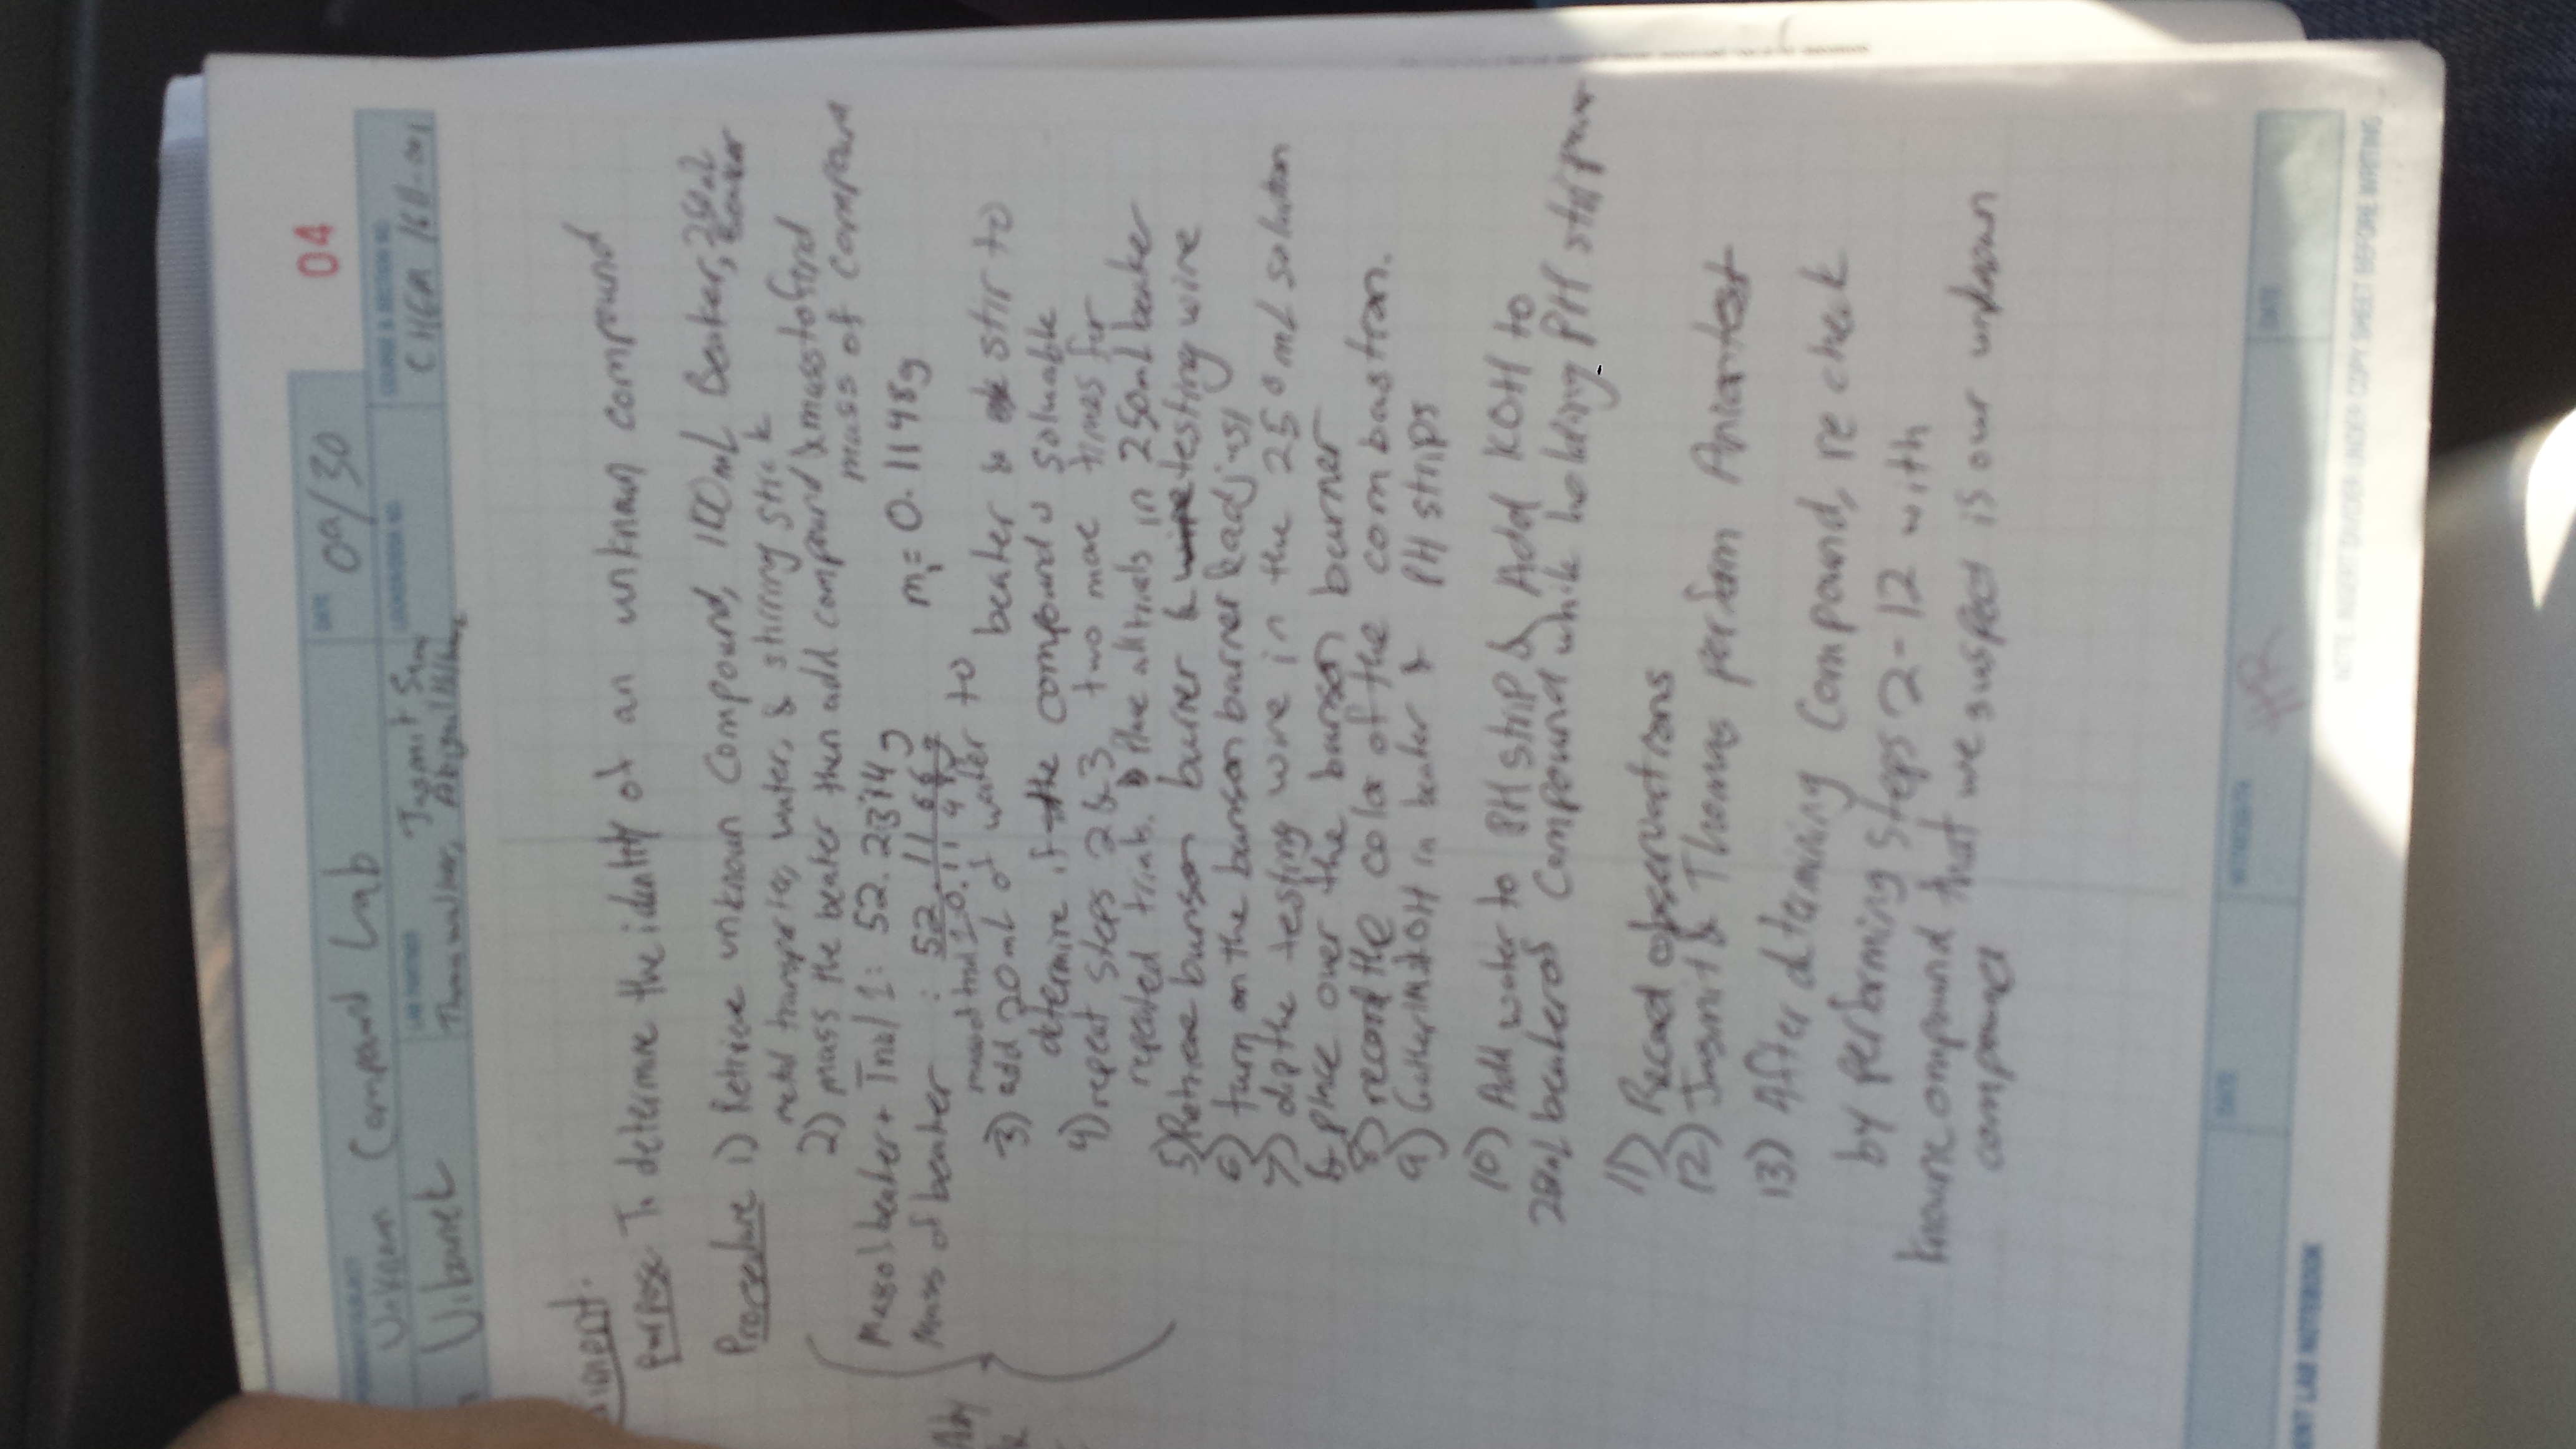 04
DATE 09/30
Unknown Compound Lab
COURSE & SECTION NO.
LAB PARTNER Jasmit
LOCKER/DESK NO.
CHEM 1611-001
Abigail
iment:
purpose: To determine the identity of an unknown compound
Procedure 1) Retrieve unknown Compound, 100mL Beaker, 250mL Beaker
metal transporter, water, & stirring stick
2) mass the beaker then add compound & mass to find
mass of compound
Mass of beaker + Trial 1: 52.2314g
Mass of beaker : 52.1166g
m₁= 0.1148g
mass of trial 1 0.1148g
3) add 20mL of water to
beaker & stir to
determine if the compound is soluable
4) repeat steps 2&3 two more times for
repeated trials. Place all trials in 250mL beaker
5) Retrieve bunson burner & wire testing wire
6) turn on the bunson burner & adjust
7) dip the testing wire in the 250mL solution
& place over the bunson burner
8) record the color of the combastion.
9) Gather 1M KOH in beaker & PH strips
10) Add water to PH strip & Add KOH to
250mL beaker of Compound while holding PH strip over
11) Record observations
12) Jasmit & Thomas perform Anion test
13) After determining Compound, re check
by performing steps 2-12 with
known compound that we suspect is our unknown
compound
DATE
WITNESS/TA
HR
DATE
ENT LAB NOTEBOOK
NOTE: INSERT DIVIDER UNDER COPY SHEET BEFORE WRITING